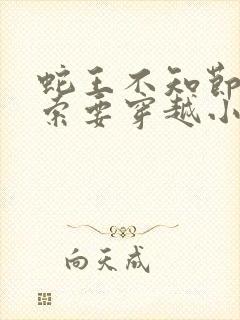 蛇王不知节
索要穿越小
向天成